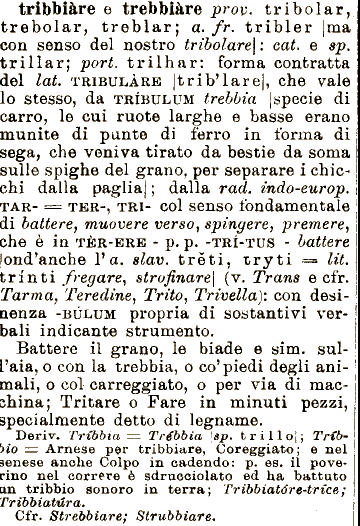 tribbiàre e trebbiàre prov. tribolar,
trebolar, treblar; a. fr. tribler |ma
con senso del nostro tribolare|: cat. e sp.
trillar; port. trilhar: forma contratta
del lat. TRIBULÀRE |trib'lare|, che vale
lo stesso, da TRÍBULUM trebbia |specie di
carro, le cui ruote larghe e basse erano
munite di punte di ferro in forma di
sega, che veniva tirato da bestie da soma
sulle spighe del grano, per separare i chic-
chi dalla paglia|; dalla rad. indo-europ.
TAR- = TER-, TRI- col senso fondamentale
di battere, muovere verso, spingere, premere,
che è in TÈR-ERE - p. p. -TRÍ-TUS - battere
|ond'anche l'a. slav. trěti, tryti = lit.
trínti fregare, strofinare| (v. Trans e cfr.
Tarma, Teredine, Trito, Trivella): con desi-
nenza -BÙLUM propria di sostantivi ver-
bali indicante strumento.
Battere il grano, le biade e sim. sul-
l'aia, o con la trebbia, o co' piedi degli ani-
mali, o col carreggiato, o per via di mac-
china; Tritare o Fare in minuti pezzi,
specialmente detto di legname.
Deriv. Tríbbia = Trébbia |sp. trillo|; Tríb-
bio = Arnese per tribbiare, Coreggiato; e nel
senese anche Colpo in cadendo: p. es. il pove-
rino nel correre è sdrucciolato ed ha battuto
un tribbio sonoro in terra; Tribbiatóre-trice;
Tribbiatúra.
Cfr. Strebbiare; Strubbiare.